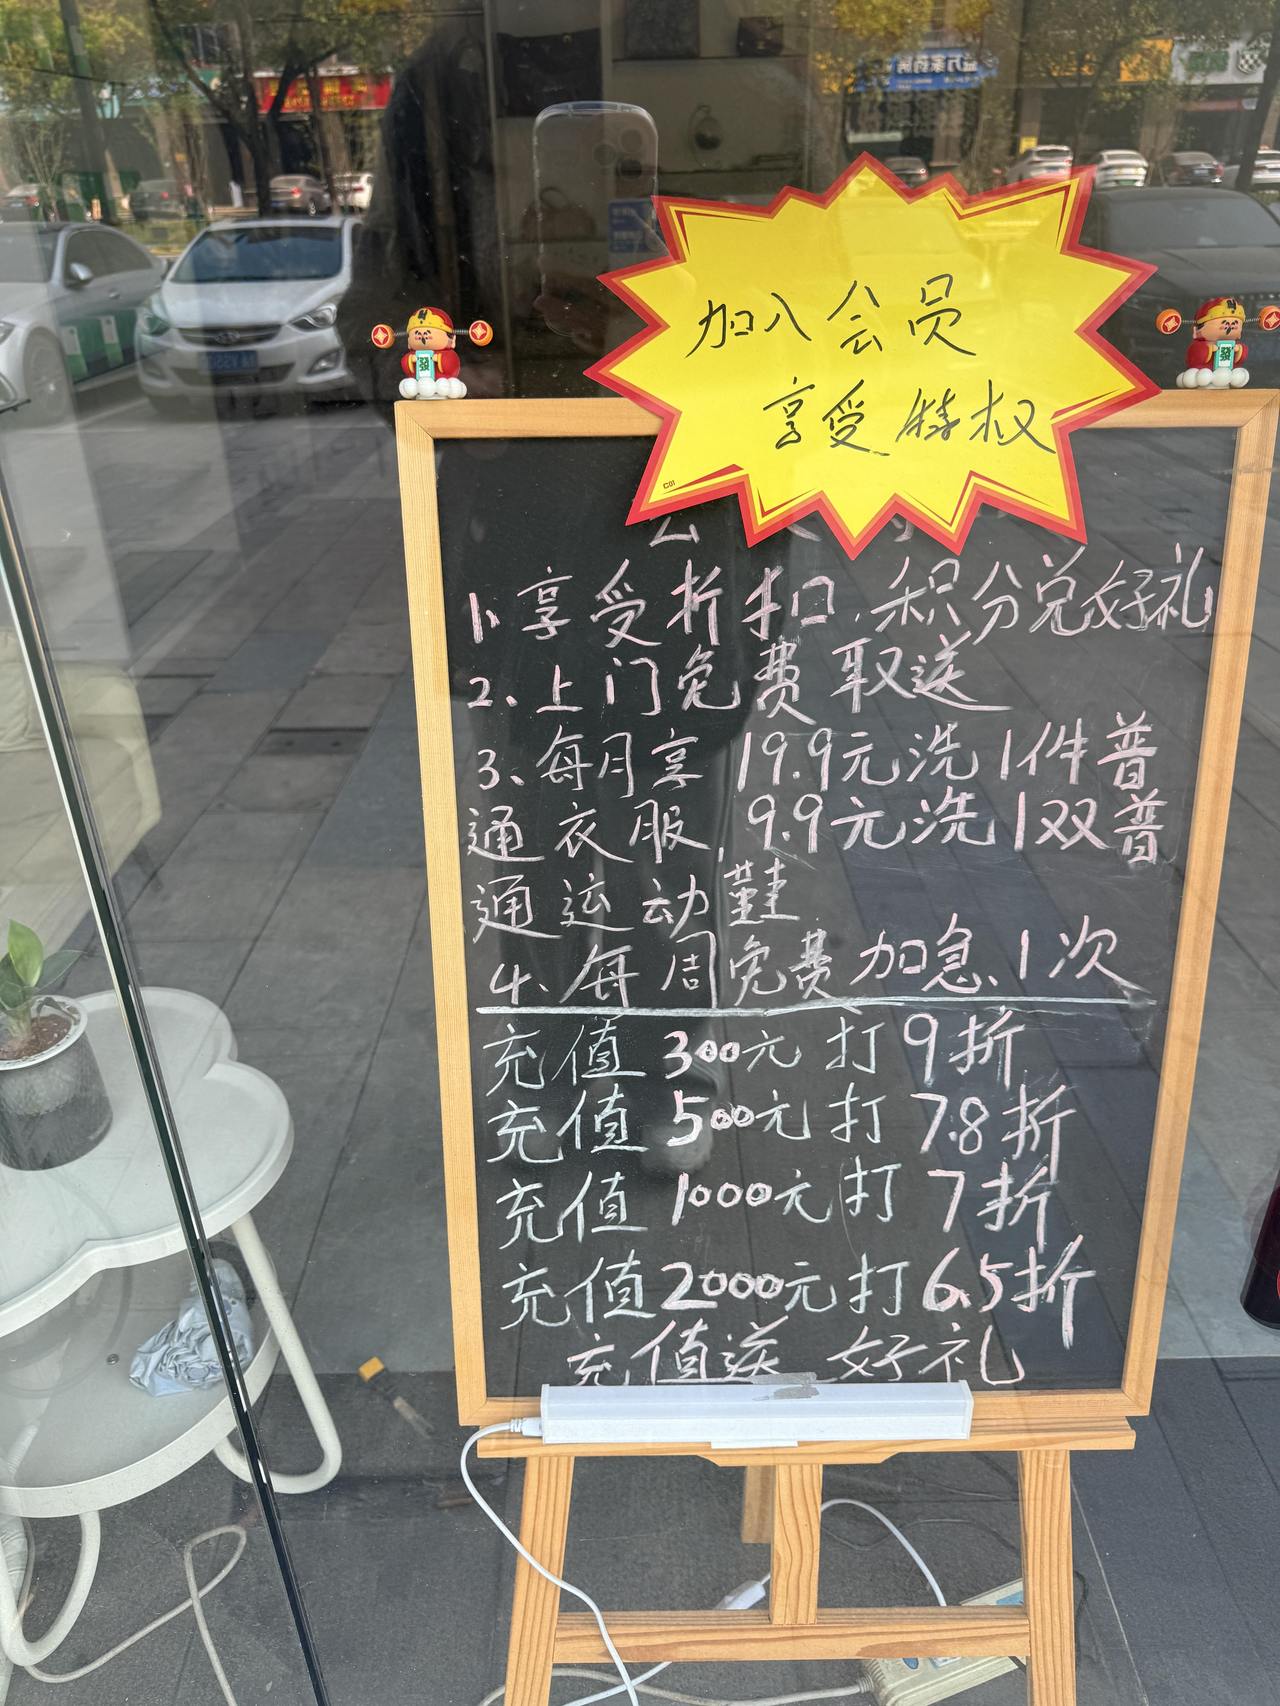 加入会员
享受特权
C01
1、享受折扣.积分兑好礼
2、上门免费取送
3、每月享19.9元洗1件普
通衣服,9.9元洗1双普
通运动鞋
4、每周免费加急、1次
充值300元打9折
充值500元打7.8折
充值1000元打7折
充值2000元打6.5折
充值送好礼
發
發